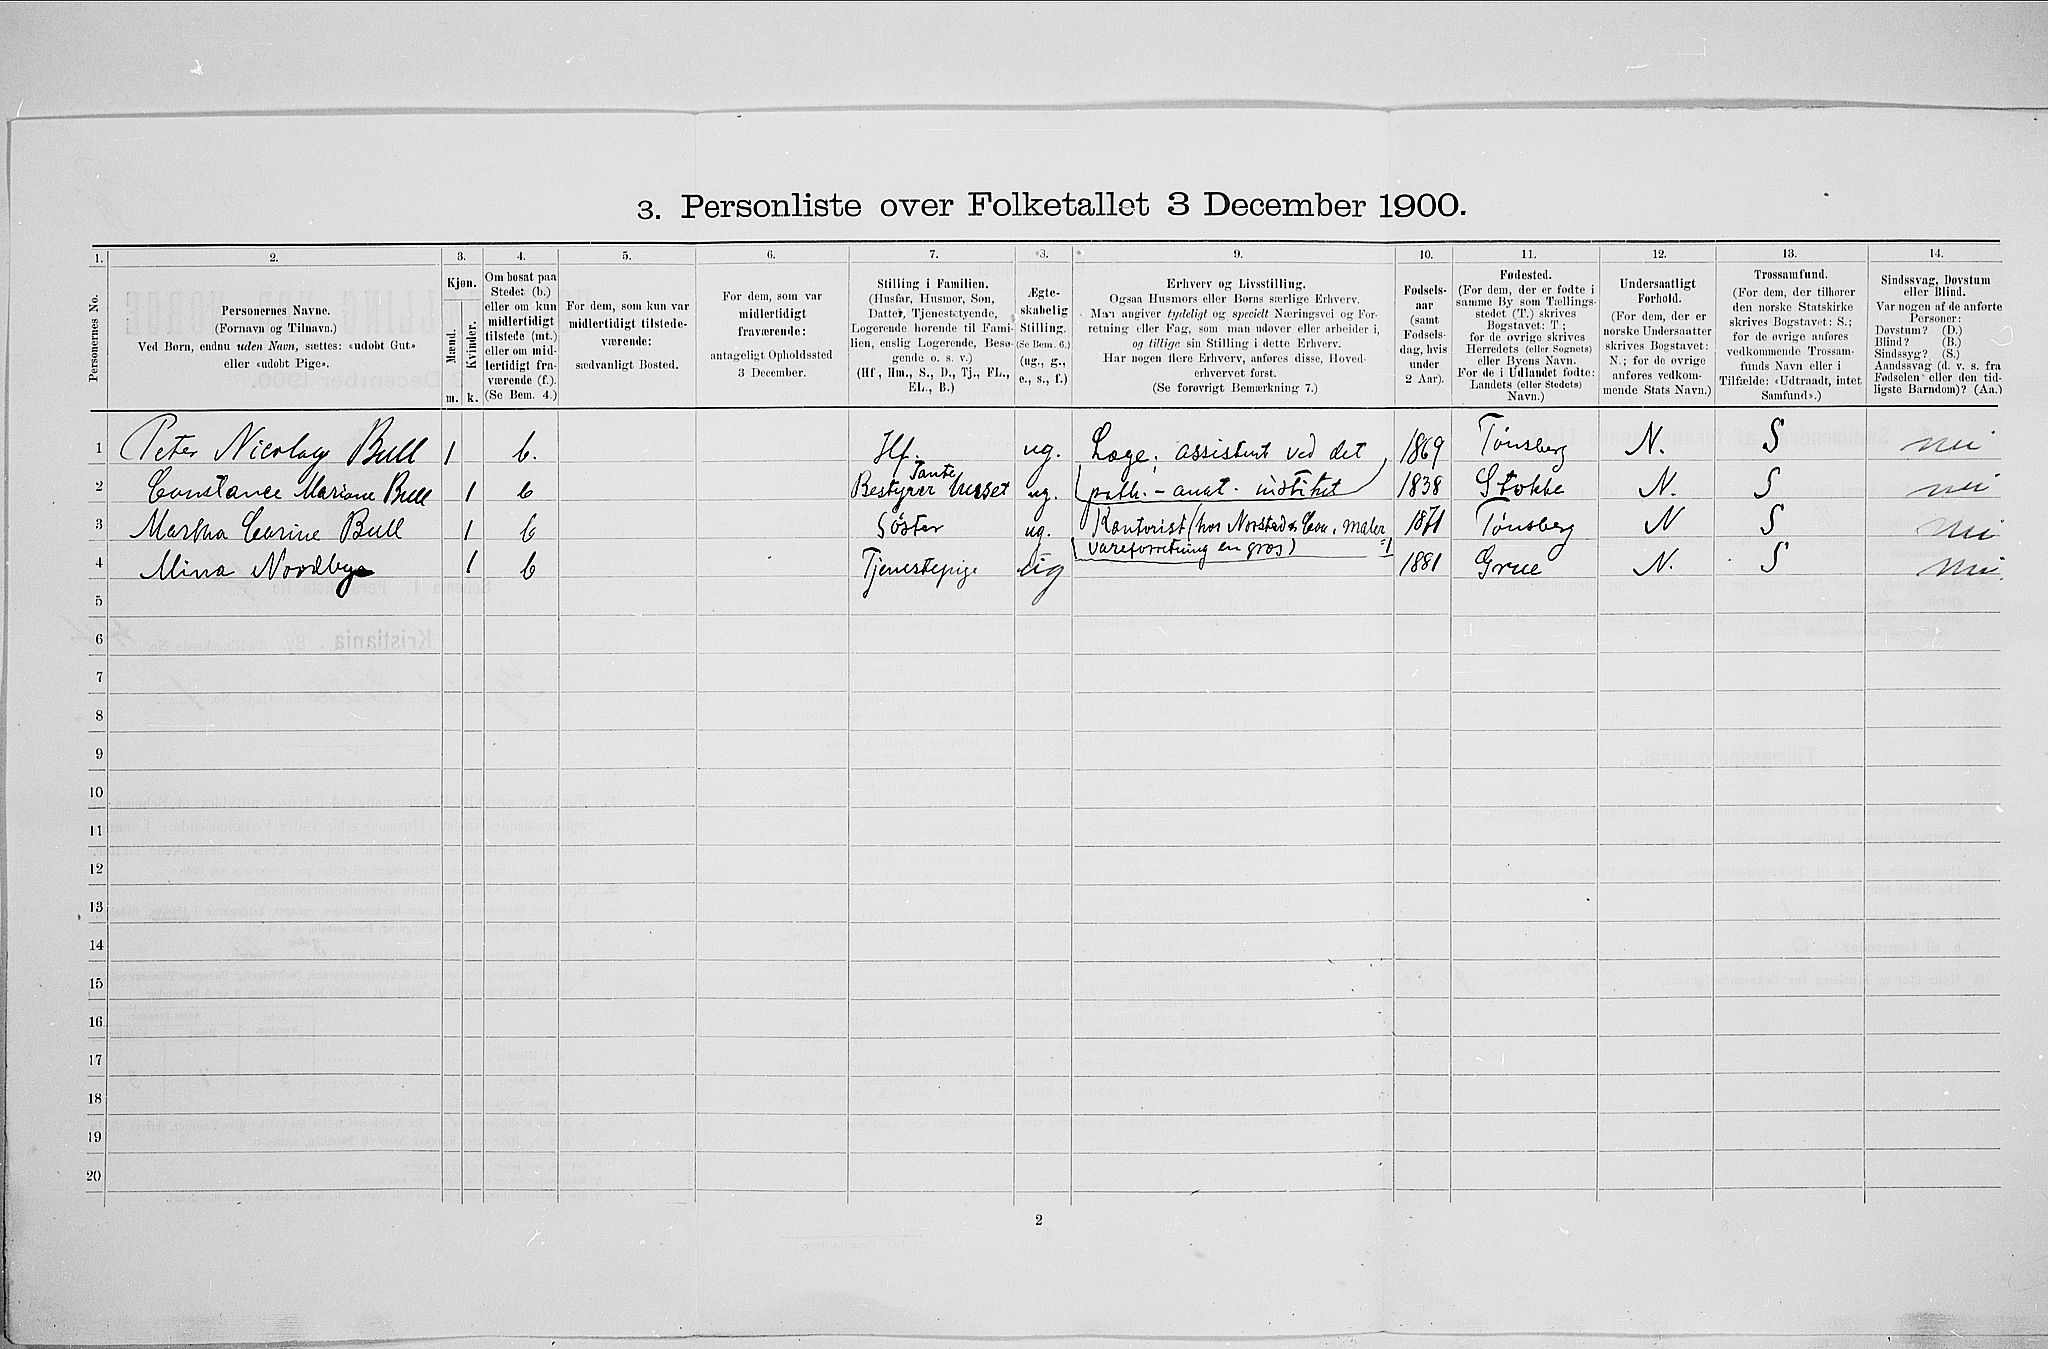 3. Personliste over Folketallet 3 December 1900.
1. 2. 3. 4. 5. 6. 7. 8. 9. 10. 11. 12. 13. 14.
Personernes No.
Personernes Navne.
(Fornavn og Tilnavn.)
Ved Børn, endnu uden Navn, sættes: «udøbt Gut»
eller «udøbt Pige».
Kjøn.
Mænd.
Kvinder.
m. k.
Om bosat paa
Stedet (b.)
eller om kun
midlertidigt
tilstede (mt.)
eller om mid-
lertidigt fra-
værende (f.).
(Se Bem. 4.)
For dem, som kun var
midlertidigt tilstede-
værende:
sædvanligt Bosted.
For dem, som var
midlertidigt
fraværende:
antageligt Opholdssted
3 December.
Stilling i Familien.
(Husfar, Husmor, Søn,
Datter, Tjenestetyende,
Logerende hørende til Fami-
lien, enslig Logerende, Besø-
gende o. s. v.)
(Hf, Hm., S., D., Tj., FL.,
EL., B.)
Ægte-
skabelig
Stilling.
(Se Bem. 6.)
(ug., g.,
e., s., f.)
Erhverv og Livsstilling.
Ogsaa Husmors eller Børns særlige Erhverv.
Man angiver tydeligt og specielt Næringsvei og For-
retning eller Fag, som man udøver eller arbeider i,
og tillige sin Stilling i dette Erhverv.
Har nogen flere Erhverv, anføres disse, Hoved-
erhvervet først.
(Se forøvrigt Bemærkning 7.)
Fødsels-
aar
(samt
Fødsels-
dag, hvis
under
2 Aar).
Fødested.
(For dem, der er fødte i
samme By som Tællings-
stedet (T.) skrives
Bogstavet: T;
for de øvrige skrives
Herredets (eller Sognets)
eller Byens Navn.
For de i Udlandet fødte:
Landets (eller Stedets)
Navn.)
Undersaatligt
Forhold.
(For dem, der er
norske Undersaatter
skrives Bogstavet:
N.; for de øvrige
anføres vedkom-
mende Stats Navn.)
Trossamfund.
(For dem, der tilhører
den norske Statskirke
skrives Bogstavet: S.;
for de øvrige anføres
vedkommende Trossam-
funds Navn eller i
Tilfælde: «Udtraadt, intet
Samfund».)
Sindssvag, Døvstum
eller Blind.
Var nogen af de anførte
Personer:
Døvstum? (D.)
Blind? (B.)
Sindssyg? (S.)
Aandssvag (d. v. s. fra
Fødselen eller den tid-
ligste Barndom)? (Aa.)
1 Peter Nicolay Bull 1 b. Hf. ug. Læge; assistent ved det 1869 Tønsberg N. S nei
2 Constance Mariane Bull 1 b Tante Bestyrer huset ug. path.-anat. institet 1838 Stokke N. S nei
3 Martha Carine Bull 1 b Söster ug. Kontorist (hos Norstad & Co., maler= 1871 Tønsberg N S nei
vareforretning en gros)
4 Mina Nordbye 1 b Tjenestepige ug 1881 Grue N. S nei
5
6
7
8
9
10
11
12
13
14
15
16
17
18
19
20
2